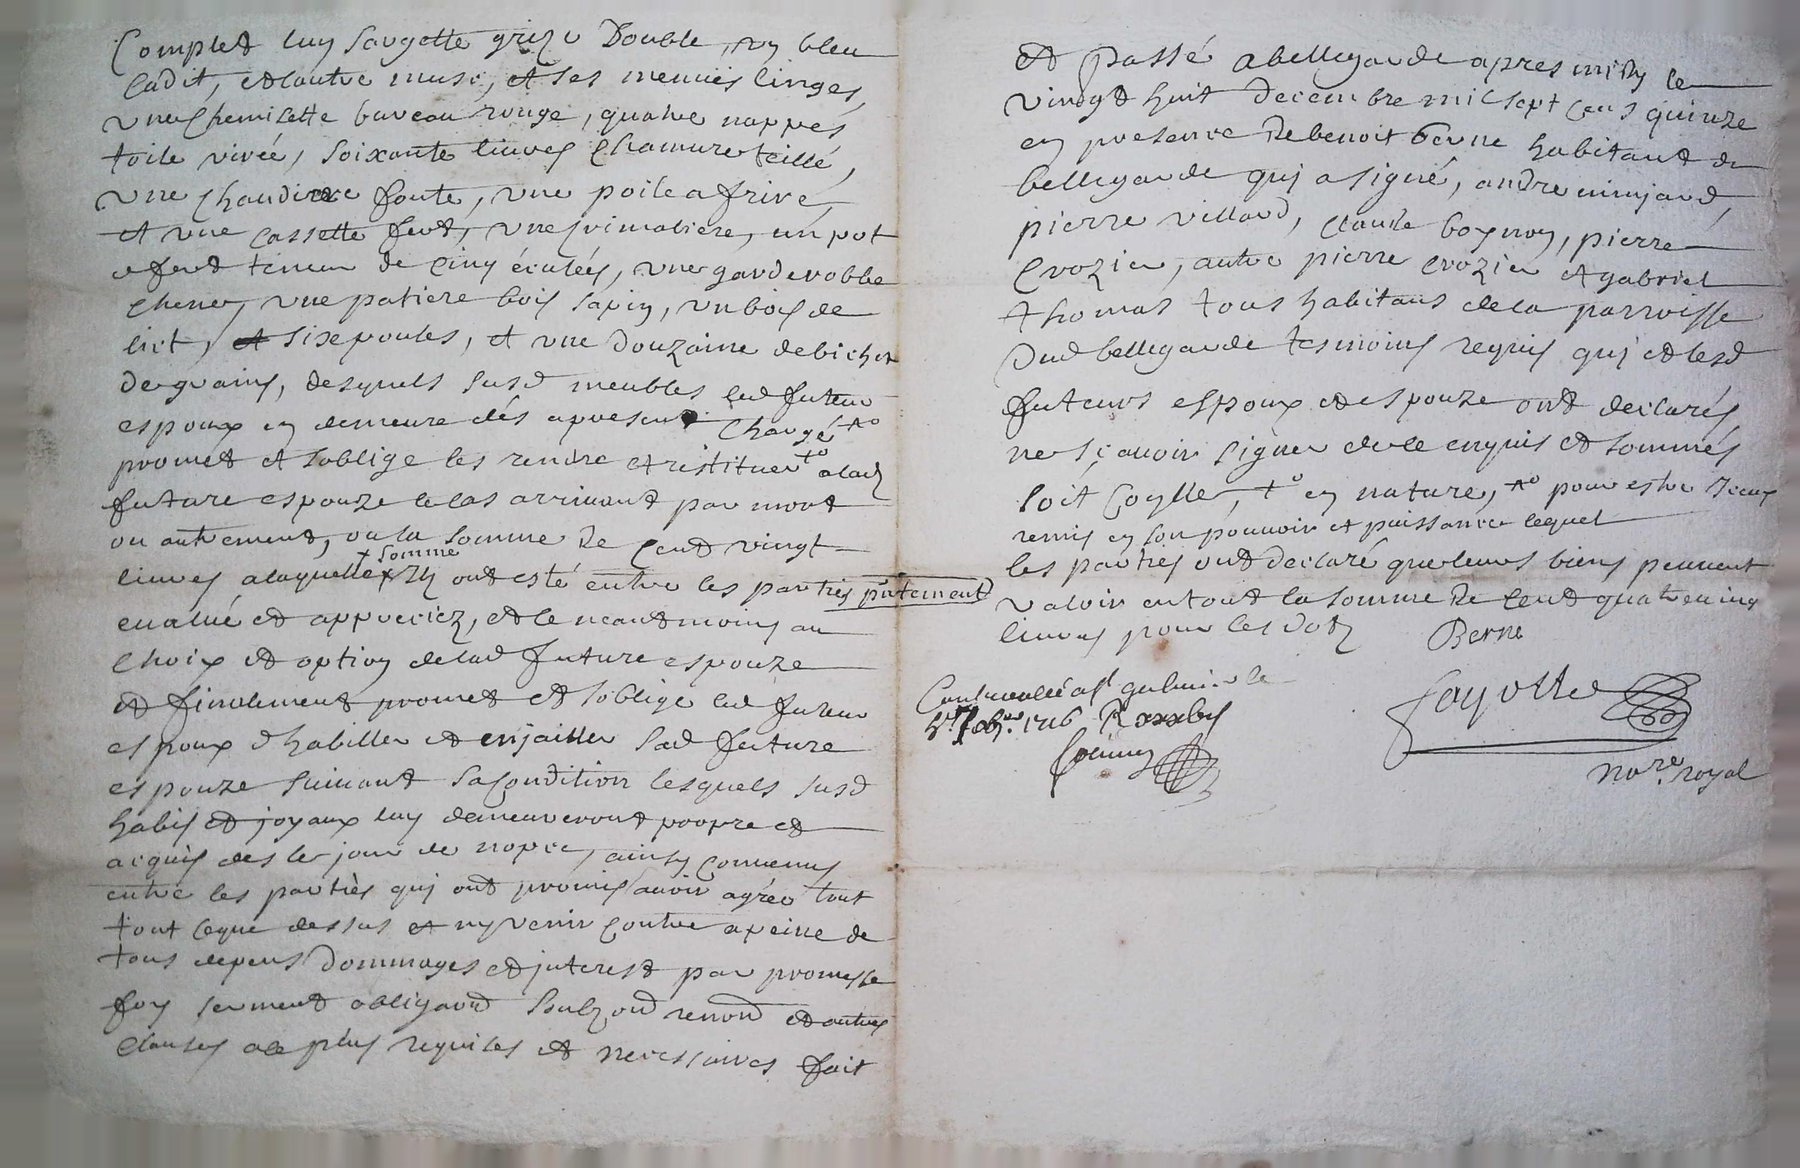 Complet luy saugette grize double, un bleu
cadit, et lautre musc, et ses menues linges,
une chemisette bureau rouge, quatre nappes
toile virée, soixante livres chanvre teillé,
une chaudiere fonte, une poile a friré,
et une cassette fert, une crimaliere, un pot
de fert teneur de cinq éculées, une garderobbe
chene, une patiere bois sapin, un bois de
lict, et sixe poules, et une douzaine de bichet
de grains, desquels susd meubles led futeur
espoux en demeure dés apresent chargé +o
promet et soblige les rendre et restituer +o a lad
future espouze le cas arrivant par mort
ou autrement, ou la somme de cent vingt
livres a laquelle + somme ilz ont esté entre les parties p̃ntement
evalué et appreciez, et le neantmoins au
choix et option de lad future espouze
et finalement promet et soblige led futeur
espoux dhabiller et enjailler sad future
espouze suivant sa condition lesquels susd
habis et joyaux luy demeureront propre et
acquis des le jour de nopce, ainsy convenus
entre les parties qui ont promis avoir agréé tout
tout ce que dessus et ny venir contre a peine de
tous depens dommages et jnterest par promesse
foy serment obligaõn renond et autres
clauses a ce plus requises et necessaires fait
et passé a bellegarde apres midy le
vingt huit decembre mil sept cens quinze
en presence de benoit berne habitant de
bellegarde qui a signé, andre
pierre villard, claude, pierre
crozier, autre pierre crozier et gabriel
thomas tous habitans de la parroisse
dud bellegarde tesmoins requis qui et lesd
futeurs espoux et espouze ont declarés
ne sçavoir signer de ce enquis et sommés
soit, +o en nature, +o pour estre iceux
remis en son pouvoir et puissance lequel
les parties ont declaré que leurs biens peuvent
valoir en tout la somme de cent quatrevingt
livres pour les dotz Berne
Controllé a St galmier le
1716
Fayolle
nore. royal